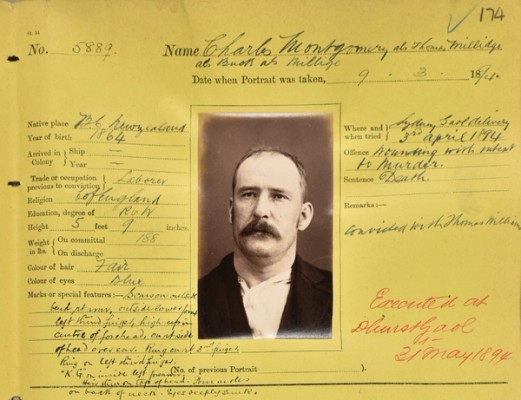 174
No. 5889 Name Charles Montgomery als Thomas Millidge
als Bush als Millige
Date when Portrait was taken, 9. 3. 1894.
Native place New Zealand
Year of birth 1864
Arrived in Colony } Ship —
Year —
Trade or occupation previous to conviction } Laborer
Religion C of England
Education, degree of R & W
Height 5 feet 9 inches.
Weight in lbs. } On committal 158
On discharge
Colour of hair Fair
Colour of eyes Blue
Marks or special features:—
left third finger, high up in
centre of forehead,
of head over ear. Ring on
Ring on left third finger.
on inside left forearm
on back of neck. Eyes deeply sunk.
(No. of previous Portrait ).
Where and when tried } Sydney Gaol delivery
3rd April 1894
Offence Wounding with intent
to Murder.
Sentence Death.
Remarks:—
Convicted with Thomas Williams
Executed at
Dhurst Gaol
31 May 1894